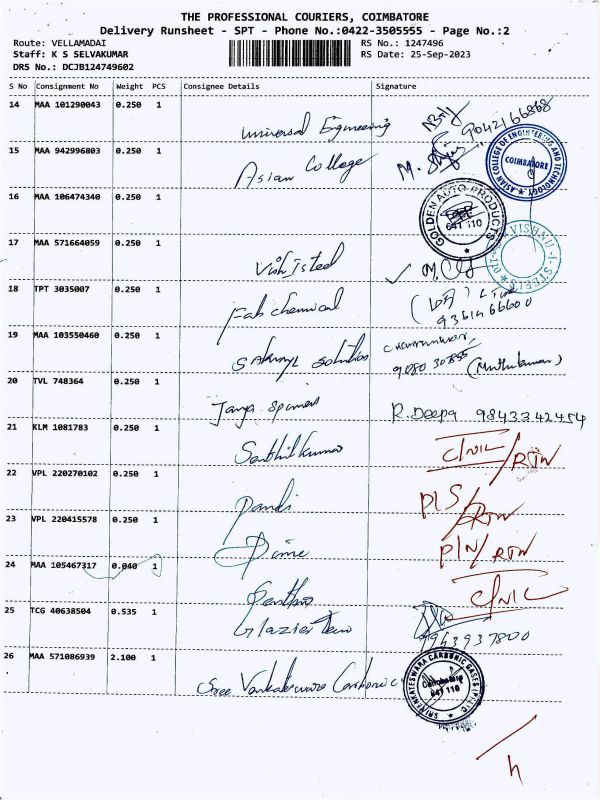 THE PROFESSIONAL COURIERS, COIMBATORE
Delivery Runsheet - SPT - Phone No.:0422-3505555 - Page No.:2
Route: VELLAMADAI RS No.: 1247496
Staff: K S SELVAKUMAR RS Date: 25-Sep-2023
DRS No.: DCJB124749602
S No Consignment No Weight PCS Consignee Details Signature
14 MAA 101290043 0.250 1
Universal Engineering 9042166868
15 MAA 942996803 0.250 1
Asian College M.
ASIAN COLLEGE OF ENGINEERING AND TECHNOLOGY COIMBATORE
16 MAA 106474340 0.250 1
GOLDEN AUTO PRODUCTS 641 110
17 MAA 571664059 0.250 1
Vishisteel
VISHNU-I-STEELS
18 TPT 3035007 0.250 1
Fab chemical
9361466600
19 MAA 103550460 0.250 1
Solutions
9080 30855 (Muthukumar)
20 TVL 748364 0.250 1
R. Deepa 9843342454
21 KLM 1081783 0.250 1
Senthilkumar C/NIC/RTN
22 VPL 220270102 0.250 1
Pandi PLS/RTN
23 VPL 220415578 0.250 1
PIN/RTN
24 MAA 105467317 0.040 1
C/NIC
25 TCG 40638504 0.535 1
Glazier 9943937800
26 MAA 571086939 2.100 1
Sree Venkateswara Carbonic
SRI VENKATESWARA CARBONIC GASES (P) LTD. Coimbatore 641 110